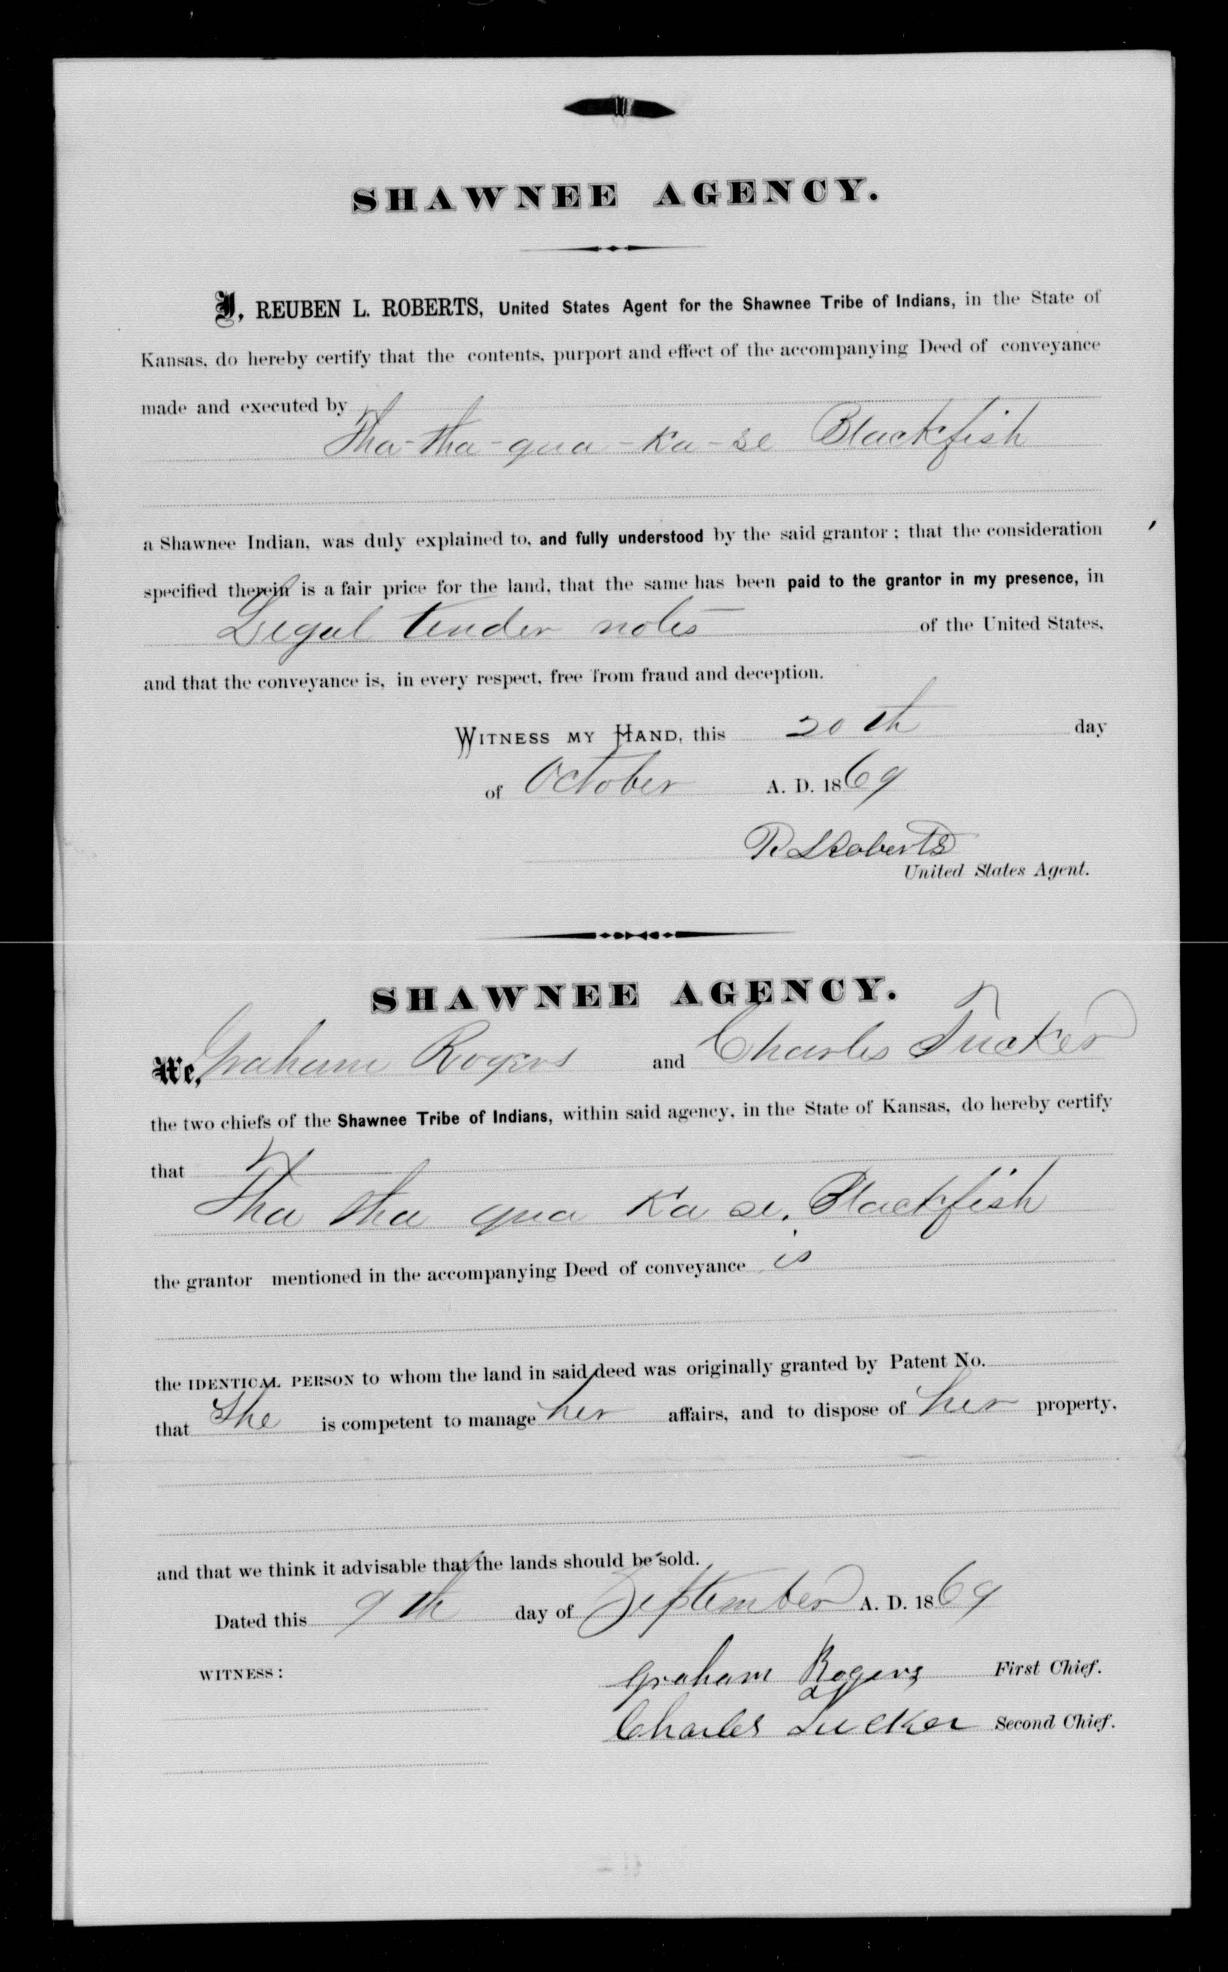 SHAWNEE AGENCY.
I, REUBEN L. ROBERTS, United States Agent for the Shawnee Tribe of Indians, in the State of
Kansas, do hereby certify that the contents, purport and effect of the accompanying Deed of conveyance
made and executed by
Tha-tha-qua-ka-se Blackfish
a Shawnee Indian, was duly explained to, and fully understood by the said grantor; that the consideration
specified therein is a fair price for the land, that the same has been paid to the grantor in my presence, in
Legal tender notes of the United States,
and that the conveyance is, in every respect, free from fraud and deception.
WITNESS MY HAND, this 20th day
of October A. D. 1869
R L Roberts
United States Agent.
SHAWNEE AGENCY.
We, Graham Rogers and Charles Tucker
the two chiefs of the Shawnee Tribe of Indians, within said agency, in the State of Kansas, do hereby certify
that
Tha tha qua ka se, Blackfish
the grantor mentioned in the accompanying Deed of conveyance is
the IDENTICAL PERSON to whom the land in said deed was originally granted by Patent No.
that She is competent to manage her affairs, and to dispose of her property,
and that we think it advisable that the lands should be sold.
Dated this 9th day of September A. D. 1869
WITNESS:
Graham Rogers First Chief.
Charles Tucker Second Chief.